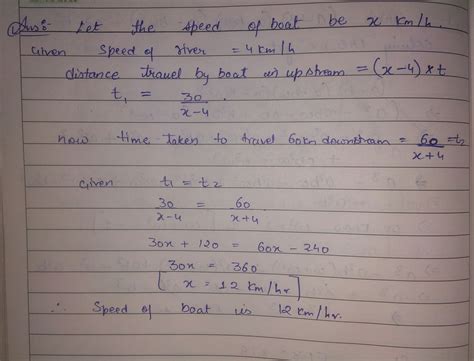 Ans:- Let the speed of boat be x km/h.
Given speed of river = 4 km/h
distance travel by boat in upstream = (x-4) × t
t₁ = 30/x-4 .
now time taken to travel 60km downstream = 60/x+4 = t₂
given t₁ = t₂
30/x-4 = 60/x+4
30x + 120 = 60x - 240
30x = 360
[x = 12 km/hr]
∴ Speed of boat is 12 km/hr.